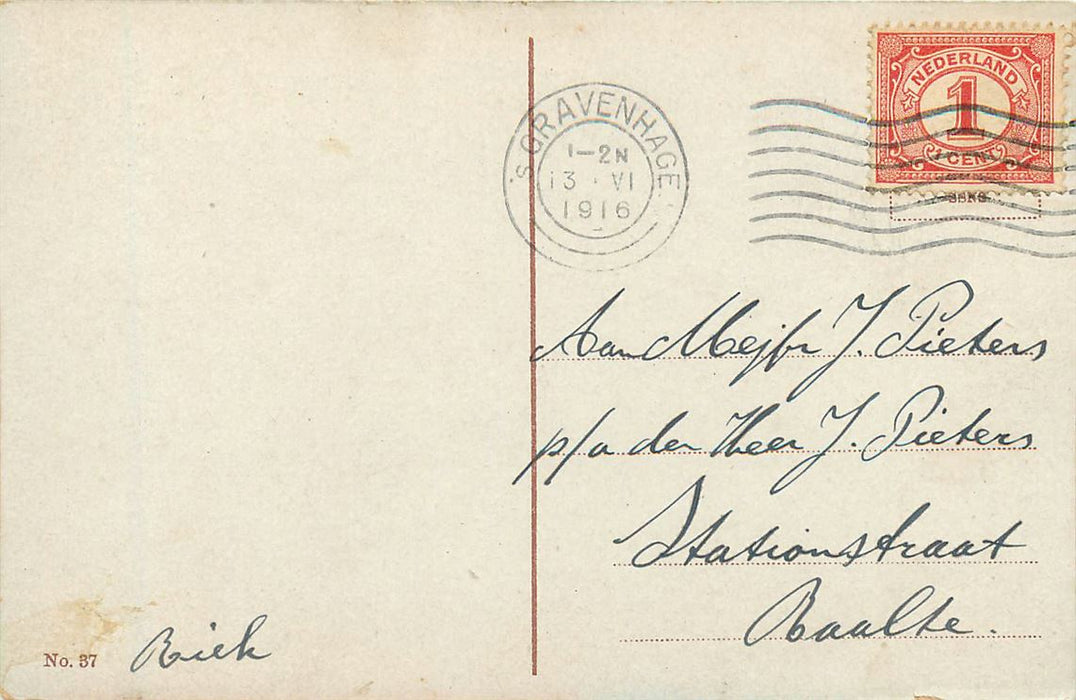 NEDERLAND
1
1 CENT
'sGRAVENHAGE
1-2N
13·VI
1916
Aan Mejfr J. Pieters
p/a den Heer J. Pieters
Stationstraat
Raalte.
No. 37
Riek